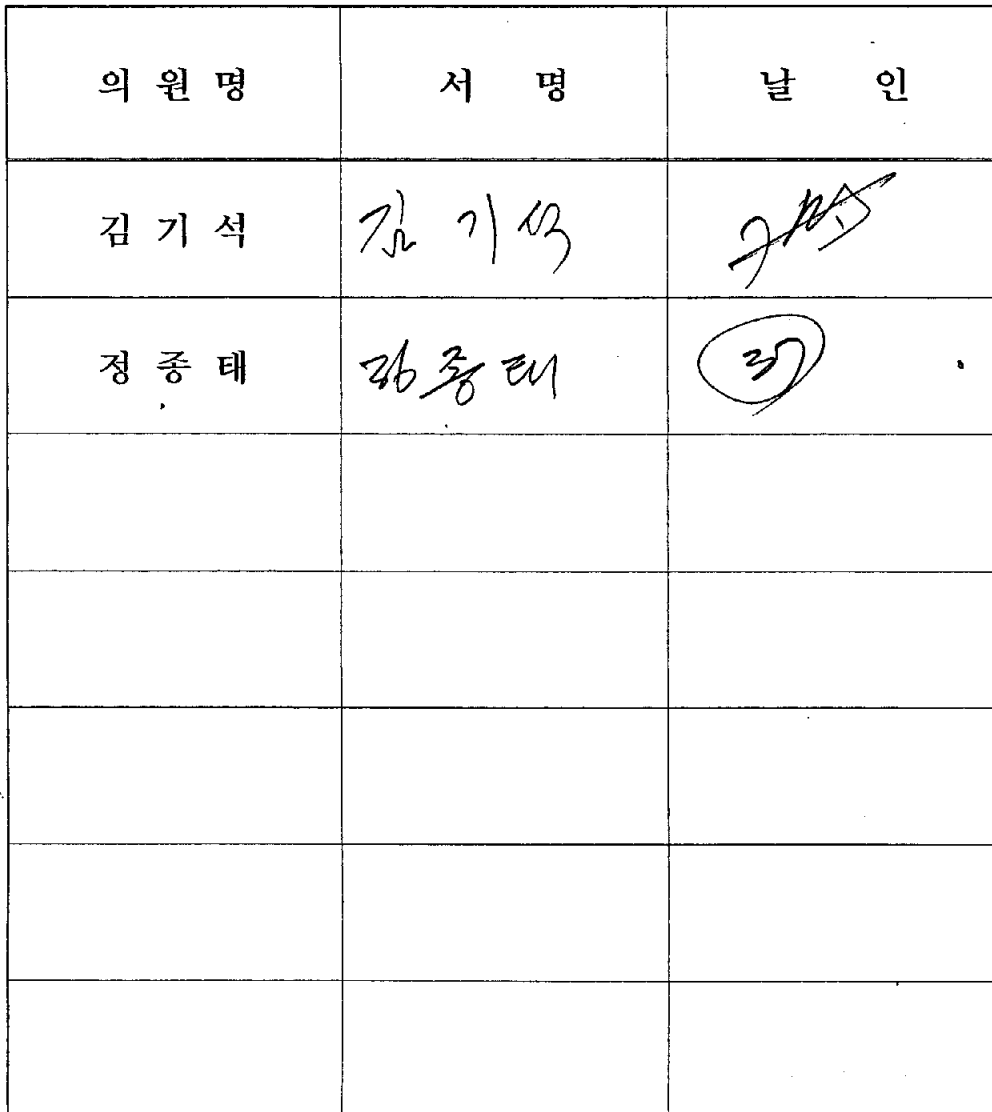 의 원 명 서 명 날 인
김 기 석 김 기 석
정 종 태 정종태